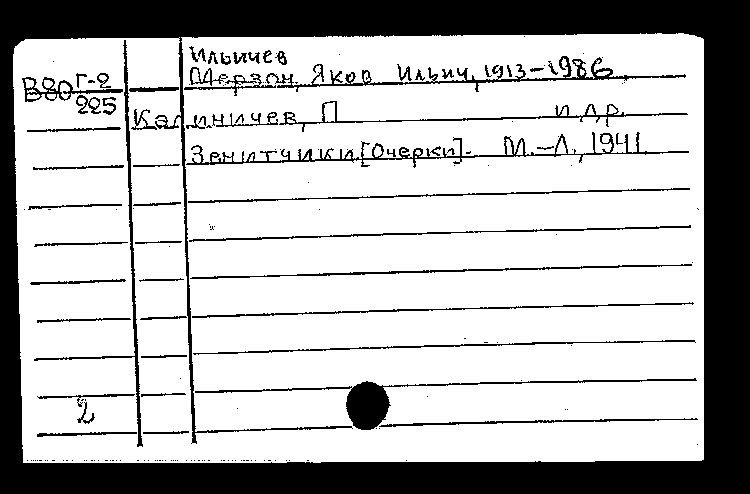 Ильичев
В80 Г-2 Мерзон, Яков Ильич, 1913-1986.
225
Калиничев, П и др.
Зенитчики [Очерки]. М.-Л., 1941
2